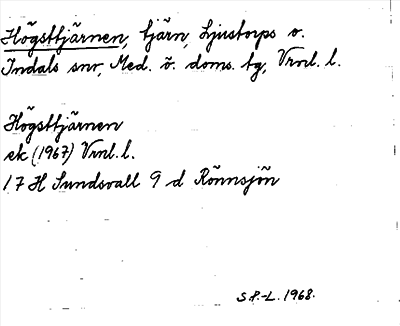 Högsttjärnen, tjärn, Ljustorps o.
Indals snr, Med. ö. doms. tg, Vrnl. l.
Högsttjärnen
ek (1967) Vrnl. l.
17 H Sundsvall 9 d Rönnsjön
S P.-L. 1968.